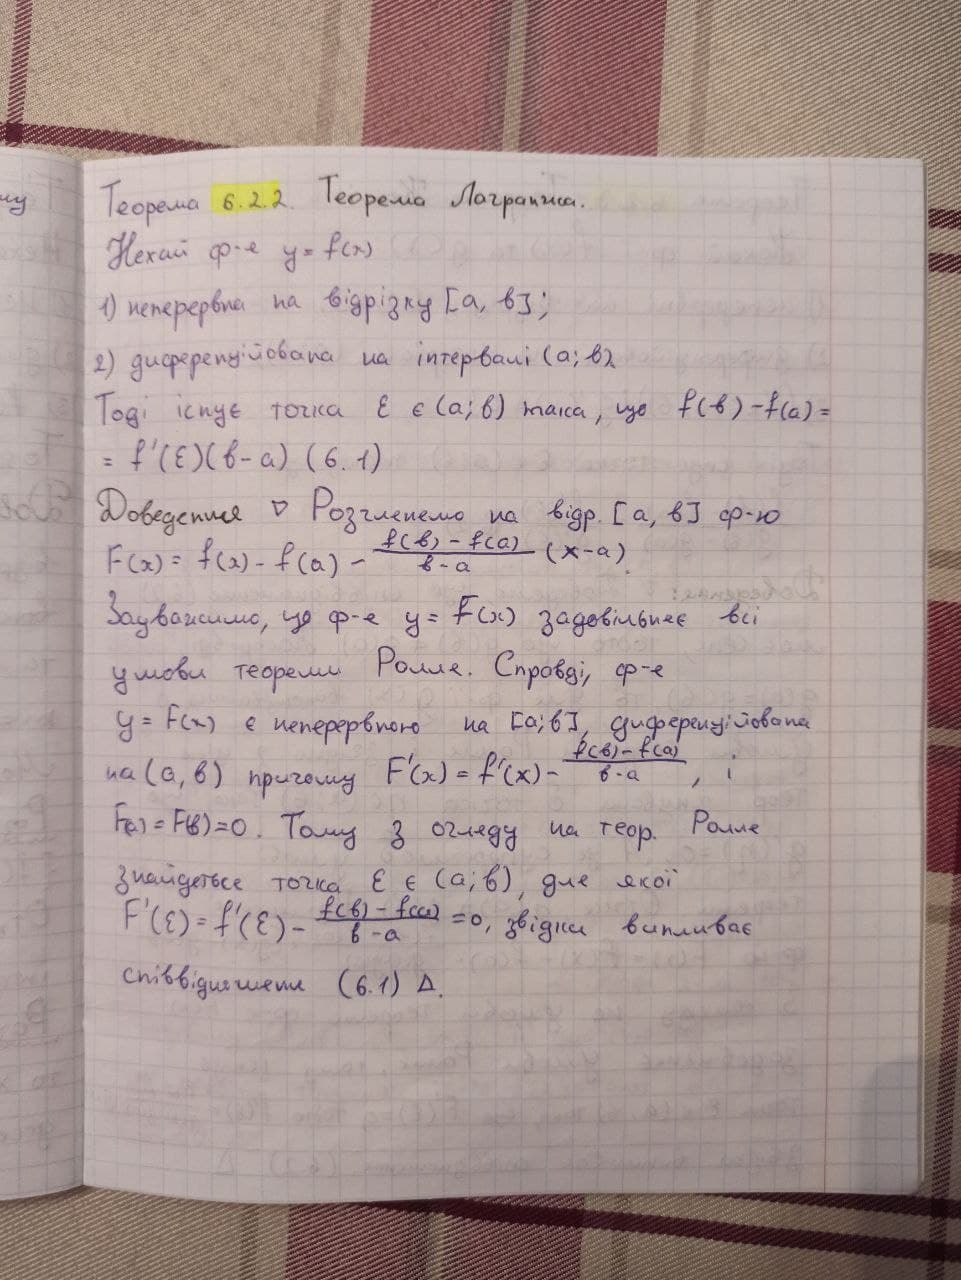 му
Теорема 6.2.2. Теорема Лагранжа.
Нехай ф-я y = f(x)
1) неперервна на відрізку [a, b];
2) диференційована на інтервалі (a; b).
Тоді існує точка ℰ є (a; b) така, що f(b) - f(a) =
= f'(ℰ)(b-a) (6.1)
Доведення ▽ Розглянемо на відр. [a, b] ф-ю
F(x) = f(x) - f(a) - \frac{f(b) - f(a)}{b-a} (x-a).
Зауважимо, що ф-я y = F(x) задовільняє всі
умови теореми Ролле. Справді, ф-я
y = F(x) є неперервною на [a; b], диференційована
на (a, b) причому F'(x) = f'(x) - \frac{f(b)-f(a)}{b-a}, і
F(a) = F(b) = 0. Тому з огляду на теор. Ролле
знайдеться точка ℰ є (a; b), для якої
F'(ℰ) = f'(ℰ) - \frac{f(b) - f(a)}{b-a} = 0, звідки випливає
співвідношення (6.1) Δ.